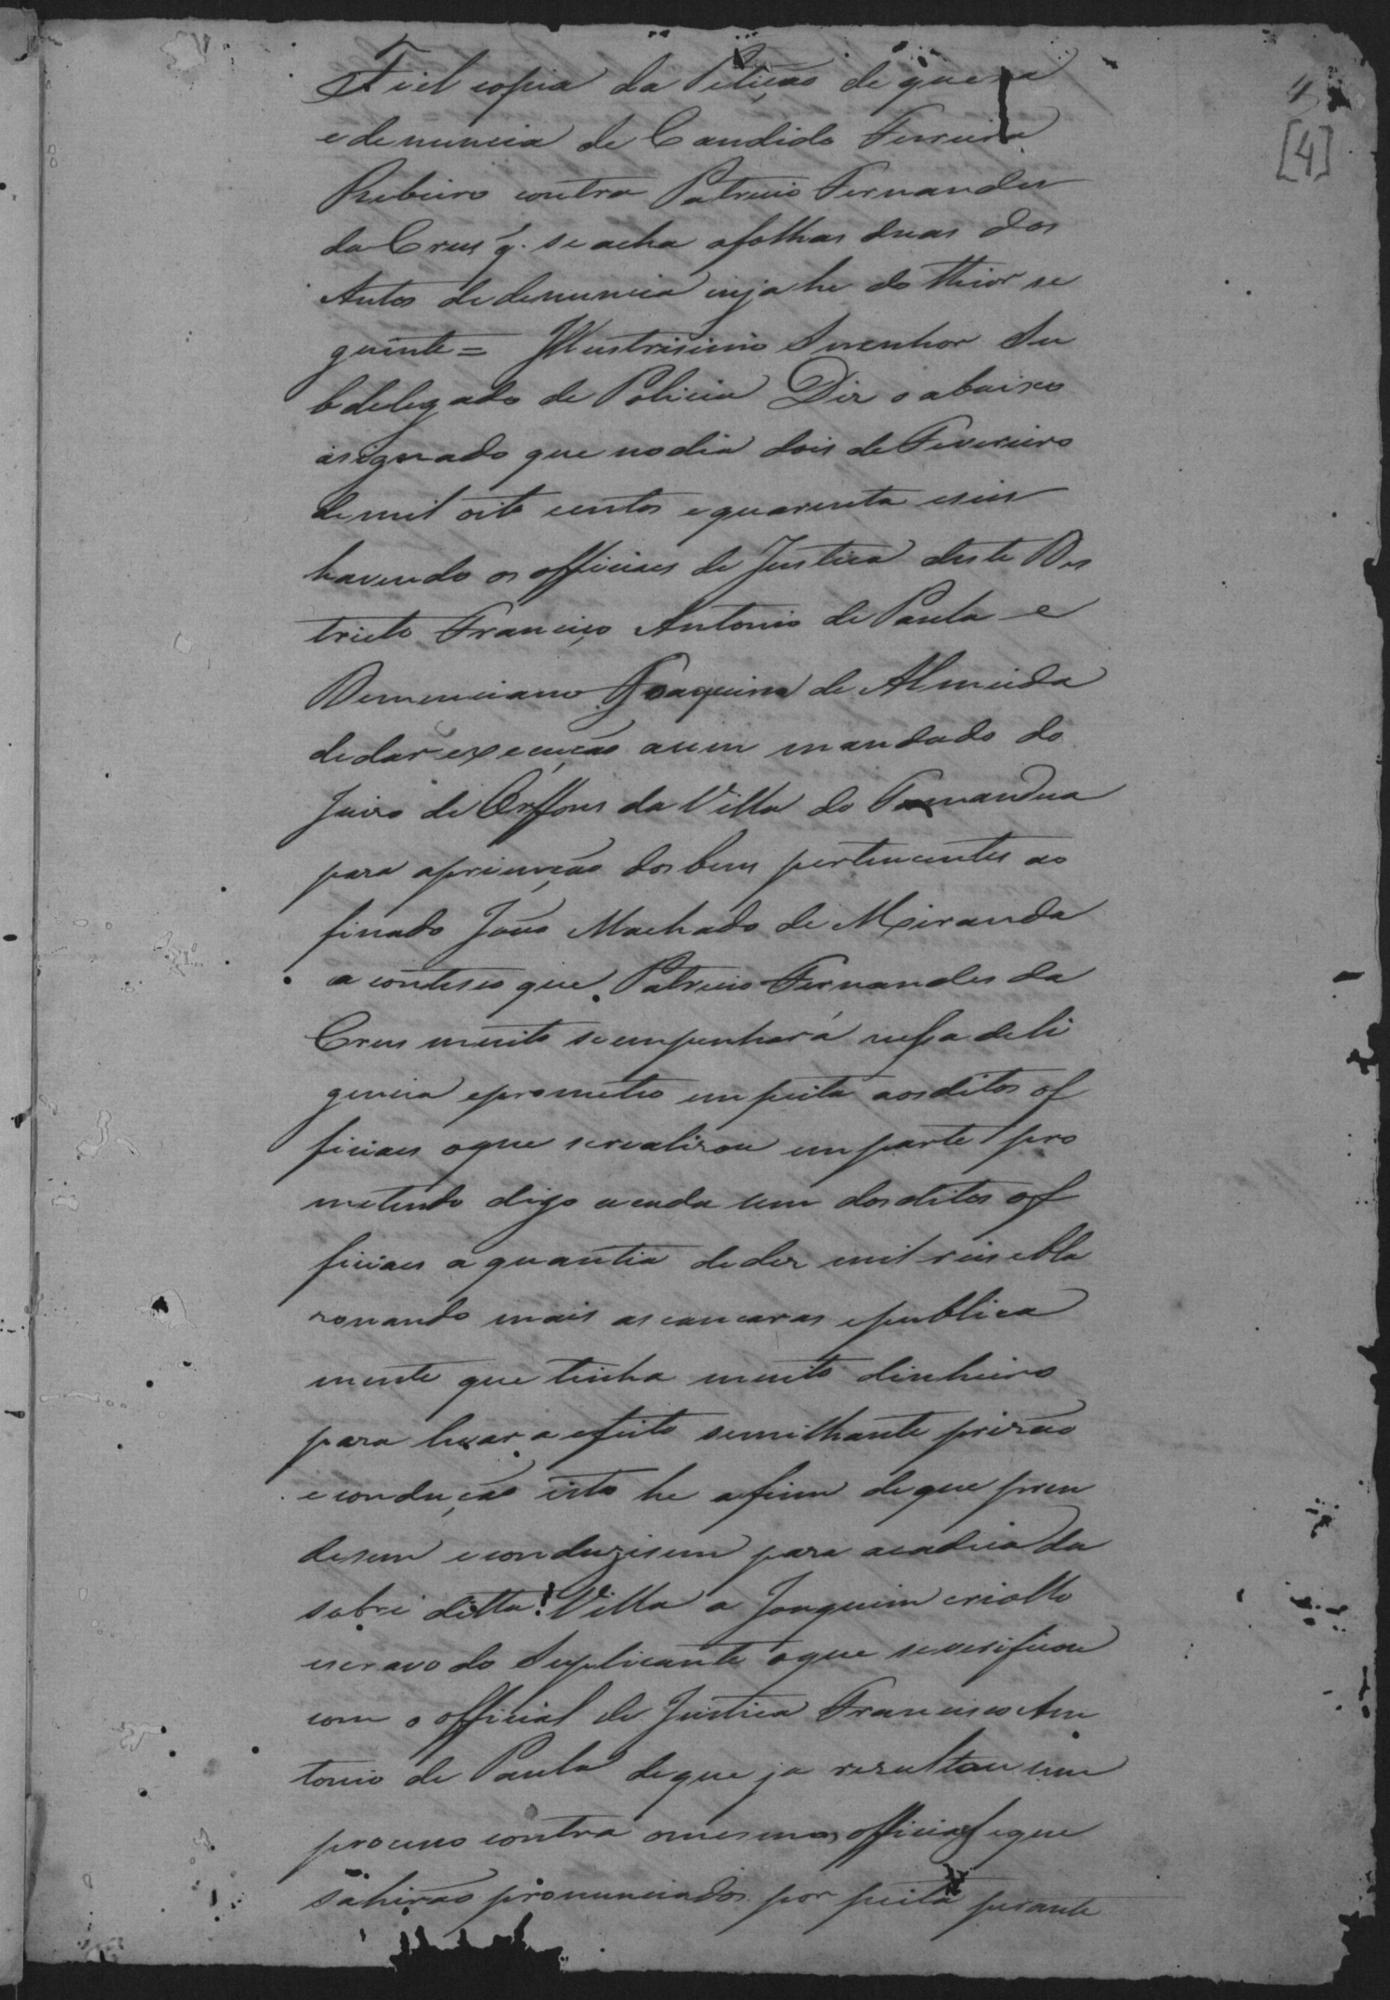 4
[4]
Fiel copia da Petição de queixa
e denuncia de Candido Ferreira
Ribeiro contra Patricio Fernandes
da Crus q. se acha afolhas duas dos
Autos de denuncia cuja he do theor se
guinte = Illustrisimo Senenhor Su
bdelegado de Policia Diz o abaixo
asignado que nodia dois de Fevereiro
de mil oito centos e quarenta e seis
havendo os officiaes de Justica deste Des
tricto Francisço Antonio de Paula e
Demenciano Joaquim de Almeida
dedar execução aum mandado do
Juizo de Orffons da Villa de Tamandua
para aprienção dos bens pertencentes ao
finado João Machado de Miranda
a conteseo que Patricio Fernandes da
Crus muito seempenhará nessa deli
gencia eprometeo em peita aosditos of
ficiaes oque serealizou em parte pro
metendo digo acada um dosditos of
ficiaes a quantia dedez mil reis ebla
zonando mais as cancaras epublica
mente que tinha muito dinheiro
para levar a efeito semilhante prizão
e condução isto he afim deque pren
desem econduzisem para acadeia da
sobre ditta Villa a Joaquim criollo
escravo do Suplicante oque severificou
com o official de Justica Francisco An
tonio de Paula deque ja rezultou um
proceso contra omesmos official eque
sahirão pronunciados por peita perante